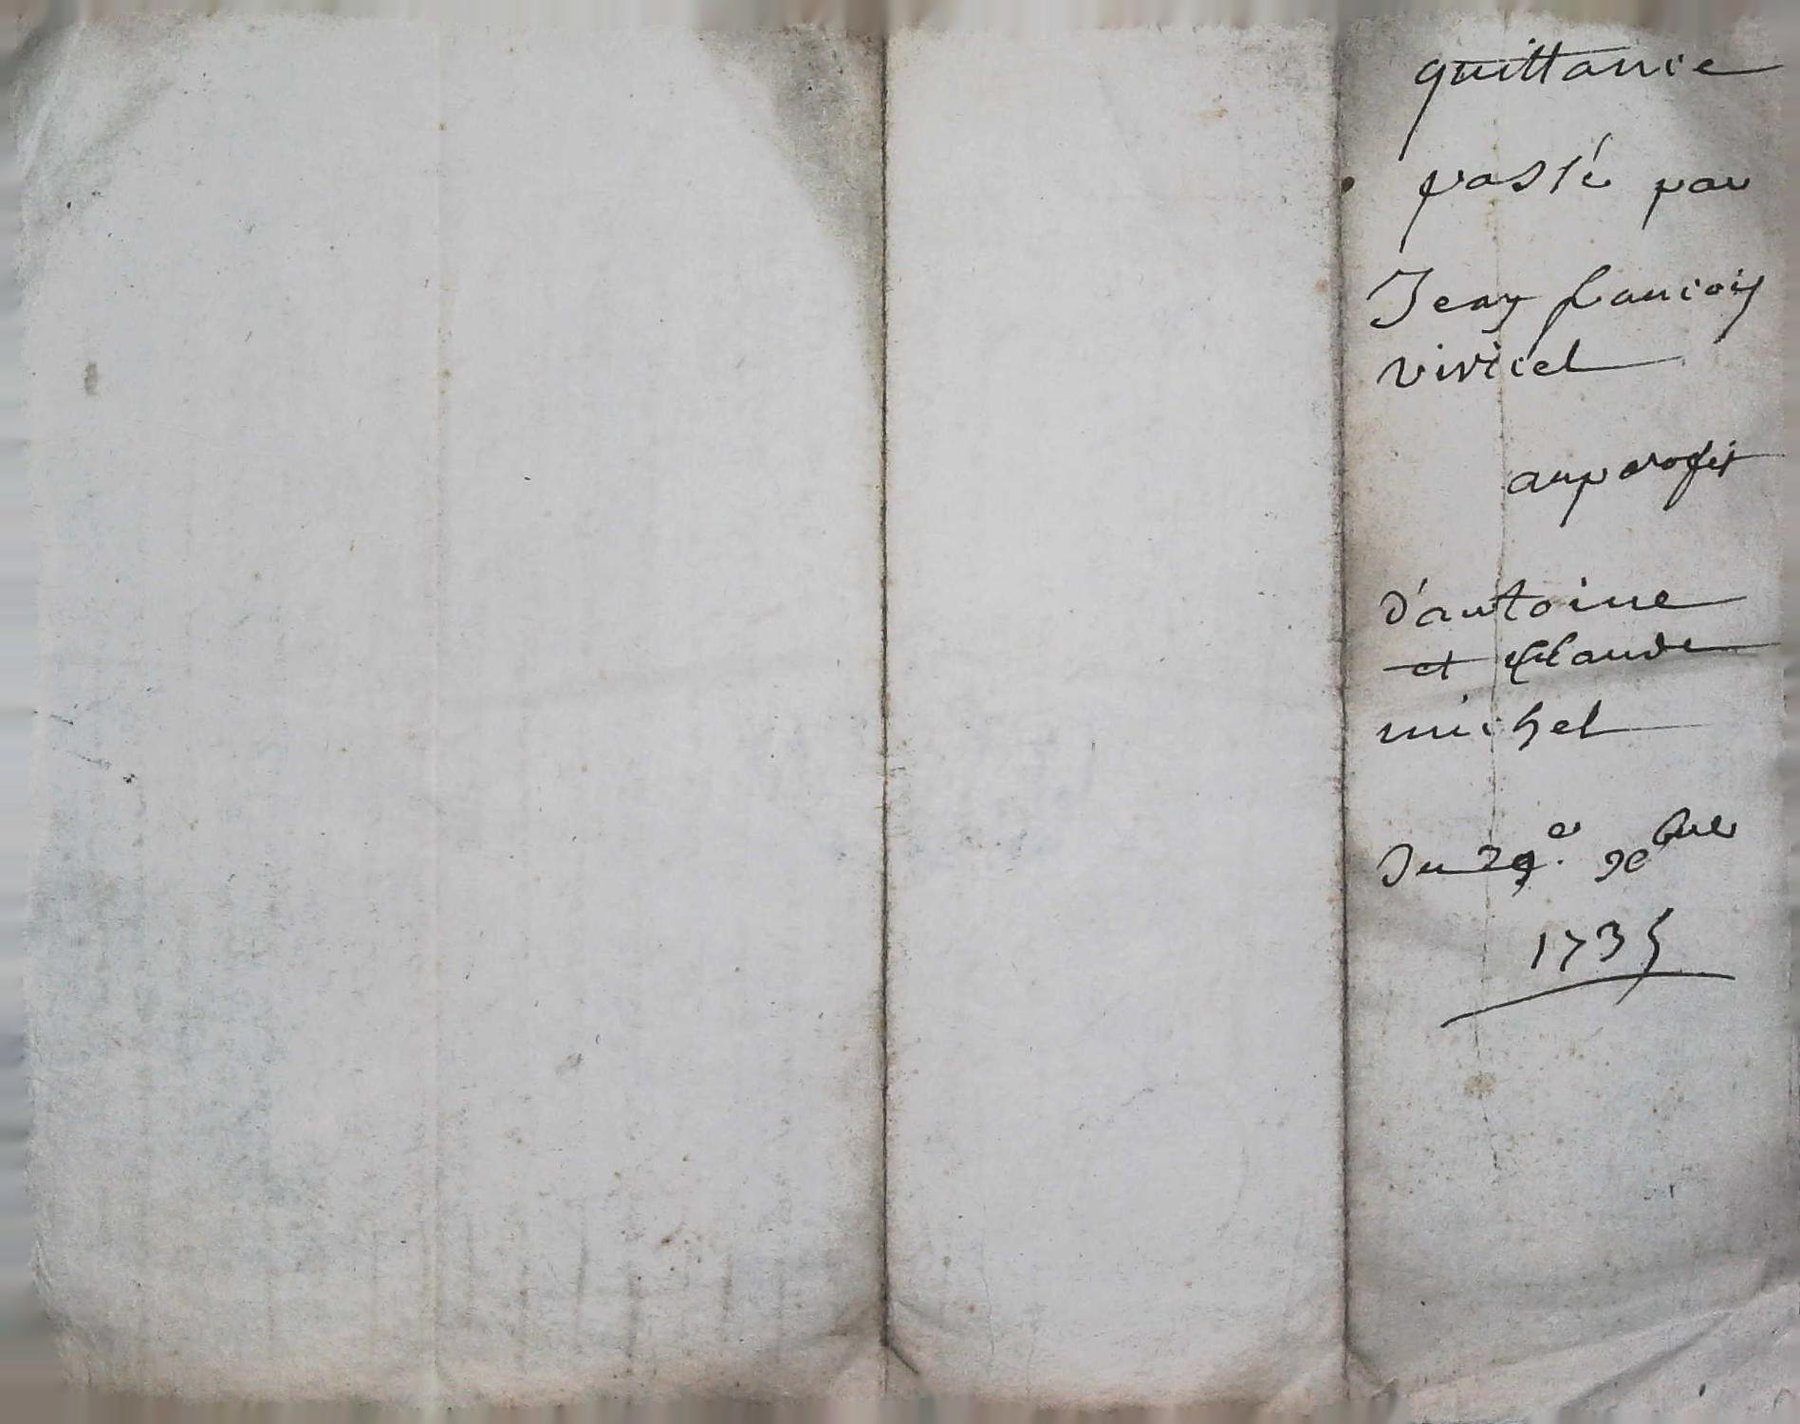 quittance
passé par
Jean francois
viviel
au profit
d'antoine
et Claude
michel
Du 29e. 9bre
1735